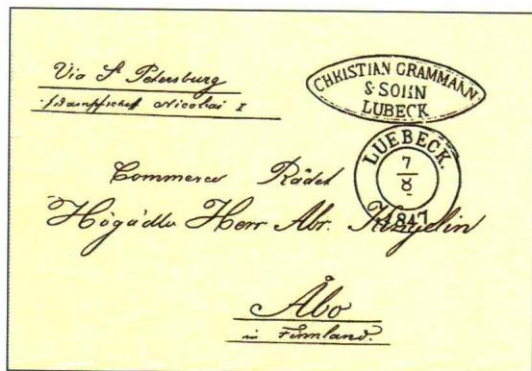 Via St Petersburg
Dampfschif Nicolai I
CHRISTIAN GRAMMANN
& SOHN
LUBECK
LUEBECK.
7
8
1847
Commerce Rådet
Högädle Herr Abr. Kingelin
Åbo
in Finnland.